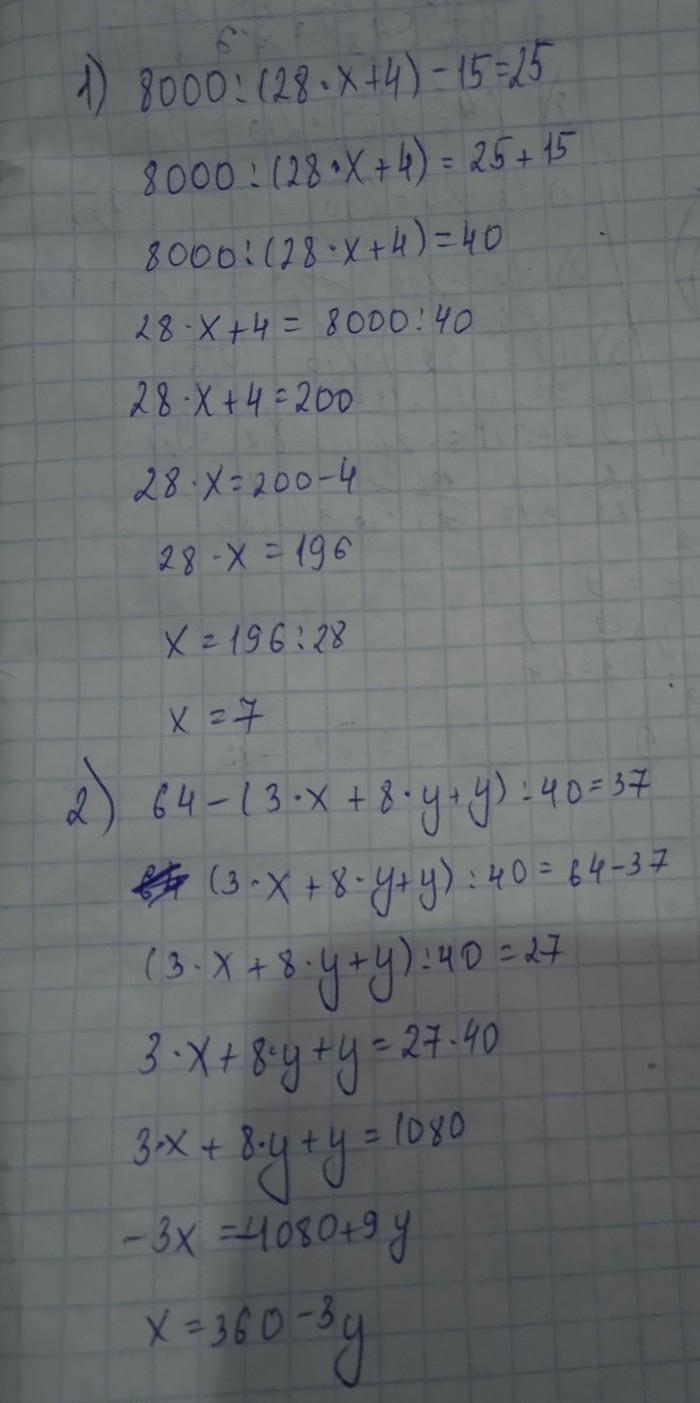 1) 8000:(28·x+4)-15=25
8000:(28·x+4)=25+15
8000:(28·x+4)=40
28·x+4=8000:40
28·x+4=200
28·x=200-4
28·x=196
x=196:28
x=7
2) 64-(3·x+8·y+y):40=37
(3·x+8·y+y):40=64-37
(3·x+8·y+y):40=27
3·x+8·y+y=27·40
3·x+8·y+y=1080
-3x=-1080+9y
x=360-3y